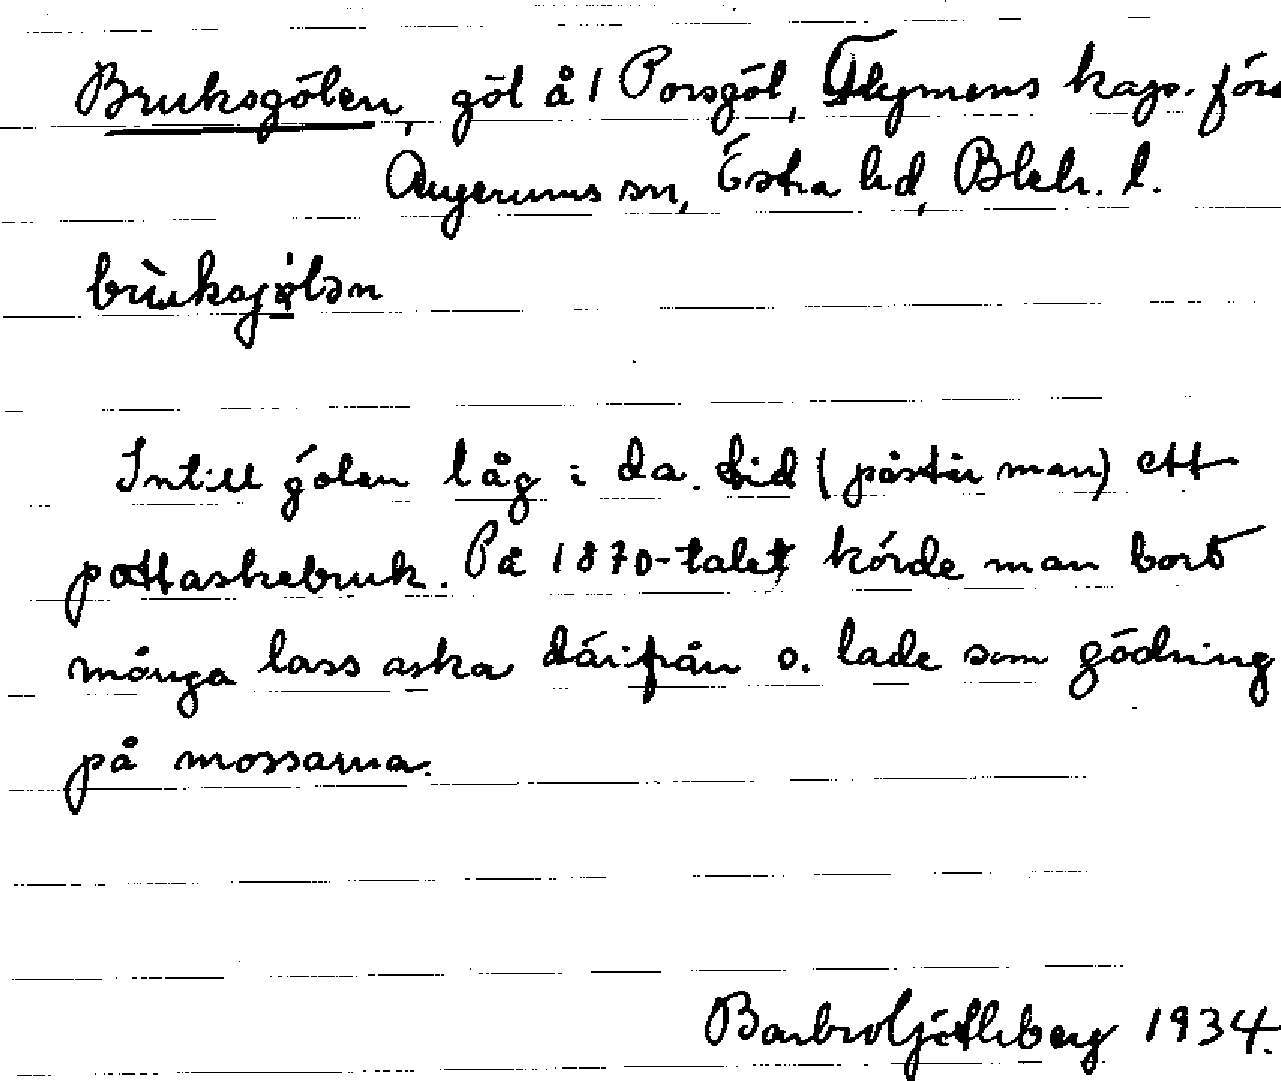 Bruksgölen, göl å 1 Porsgöl, Flymens kap. förs
Augerums sn, Östra hd, Blek. l.
brùksjö̀lən
Intill gölen låg i da. tid (påstår man) ett
pottaskebruk. På 1870-talet körde man bort
många lass aska därifrån o. lade som gödning
på mossarna.
Barbro 1934.